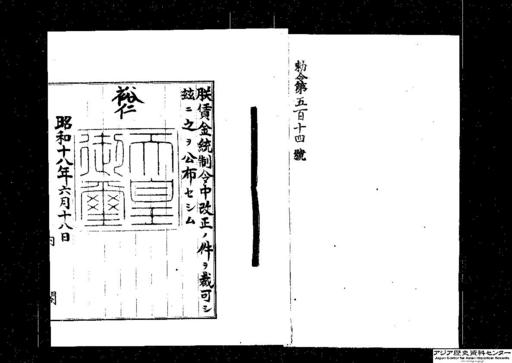 勅令第五百十四號
朕賃金統制令中改正ノ件ヲ裁可シ
玆ニ之ヲ公布セシム
裕仁
天皇御璽
昭和十八年六月十八日
内閣
アジア歴史資料センター
Japan Center for Asian Historical Records